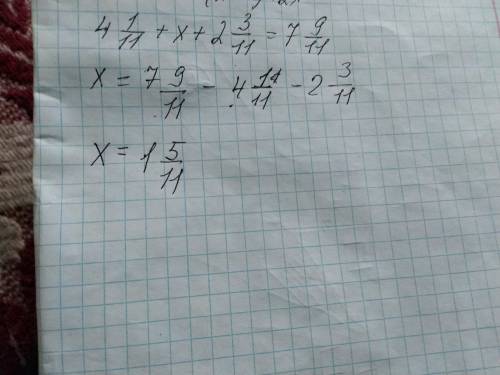 4 1/11 + x + 2 3/11 = 7 9/11
x = 7 9/11 - 4 1/11 - 2 3/11
x = 1 5/11